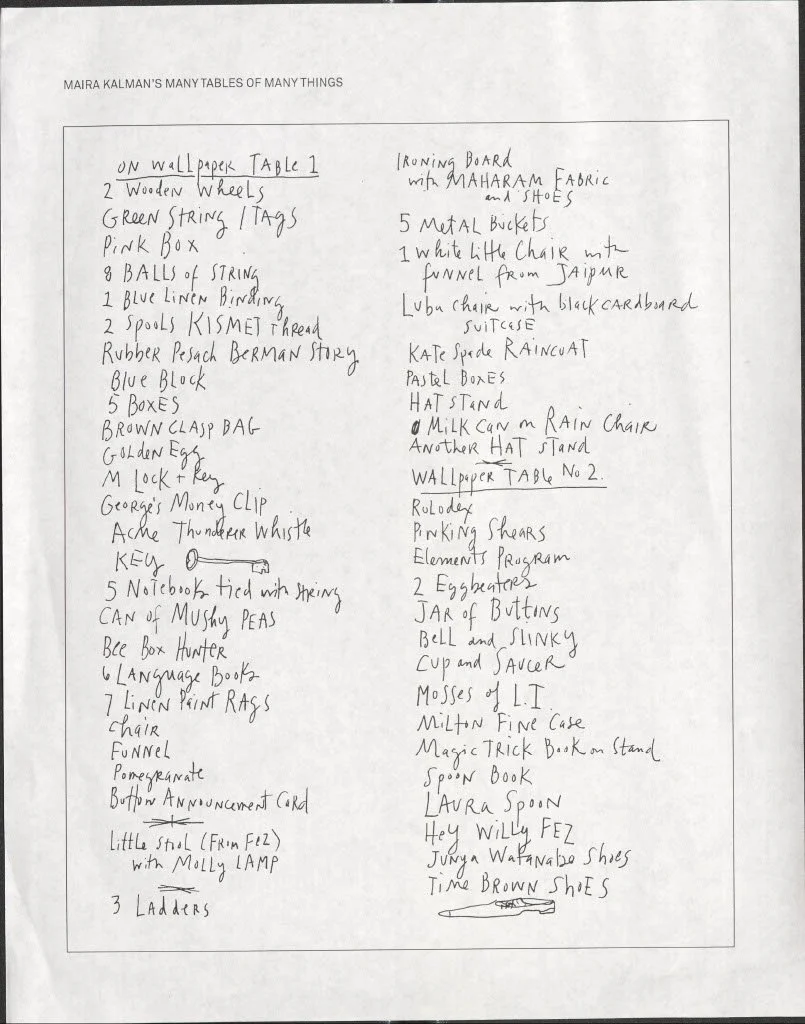 MAIRA KALMAN'S MANY TABLES OF MANY THINGS
ON WALLPAPER TABLE 1
2 WOODEN WHEELS
GREEN STRING / TAGS
PINK BOX
8 BALLS of STRING
1 BLUE LINEN BINDING
2 SPOOLS KISMET THREAD
RUBBER PESACH BERMAN STORY
BLUE BLOCK
5 BOXES
BROWN CLASP BAG
GOLDEN EGG
M LOCK + KEY
GEORGE'S MONEY CLIP
ACME THUNDERER WHISTLE
KEY
5 NOTEBOOKS tied with STRING
CAN of MUSHY PEAS
BEE BOX HUNTER
6 LANGUAGE BOOKS
7 LINEN PAINT RAGS
CHAIR
FUNNEL
POMEGRANATE
BUTTON ANNOUNCEMENT CARD
LITTLE STOOL (FROM FEZ)
with MOLLY LAMP
3 LADDERS
IRONING BOARD
with MAHARAM FABRIC
and SHOES
5 METAL BUCKETS
1 WHITE LITTLE CHAIR with
FUNNEL FROM JAIPUR
LUBU CHAIR with black CARDBOARD
SUITCASE
KATE SPADE RAINCOAT
PASTEL BOXES
HAT STAND
MILK CAN on RAIN CHAIR
ANOTHER HAT STAND
WALLPAPER TABLE No 2.
ROLODEX
PINKING SHEARS
ELEMENTS PROGRAM
2 EGGBEATERS
JAR of BUTTONS
BELL and SLINKY
CUP and SAUCER
MOSSES of L.I.
MILTON FINE CASE
MAGIC TRICK BOOK on STAND
SPOON BOOK
LAURA SPOON
HEY WILLY FEZ
JUNYA WATANABE SHOES
TIME BROWN SHOES